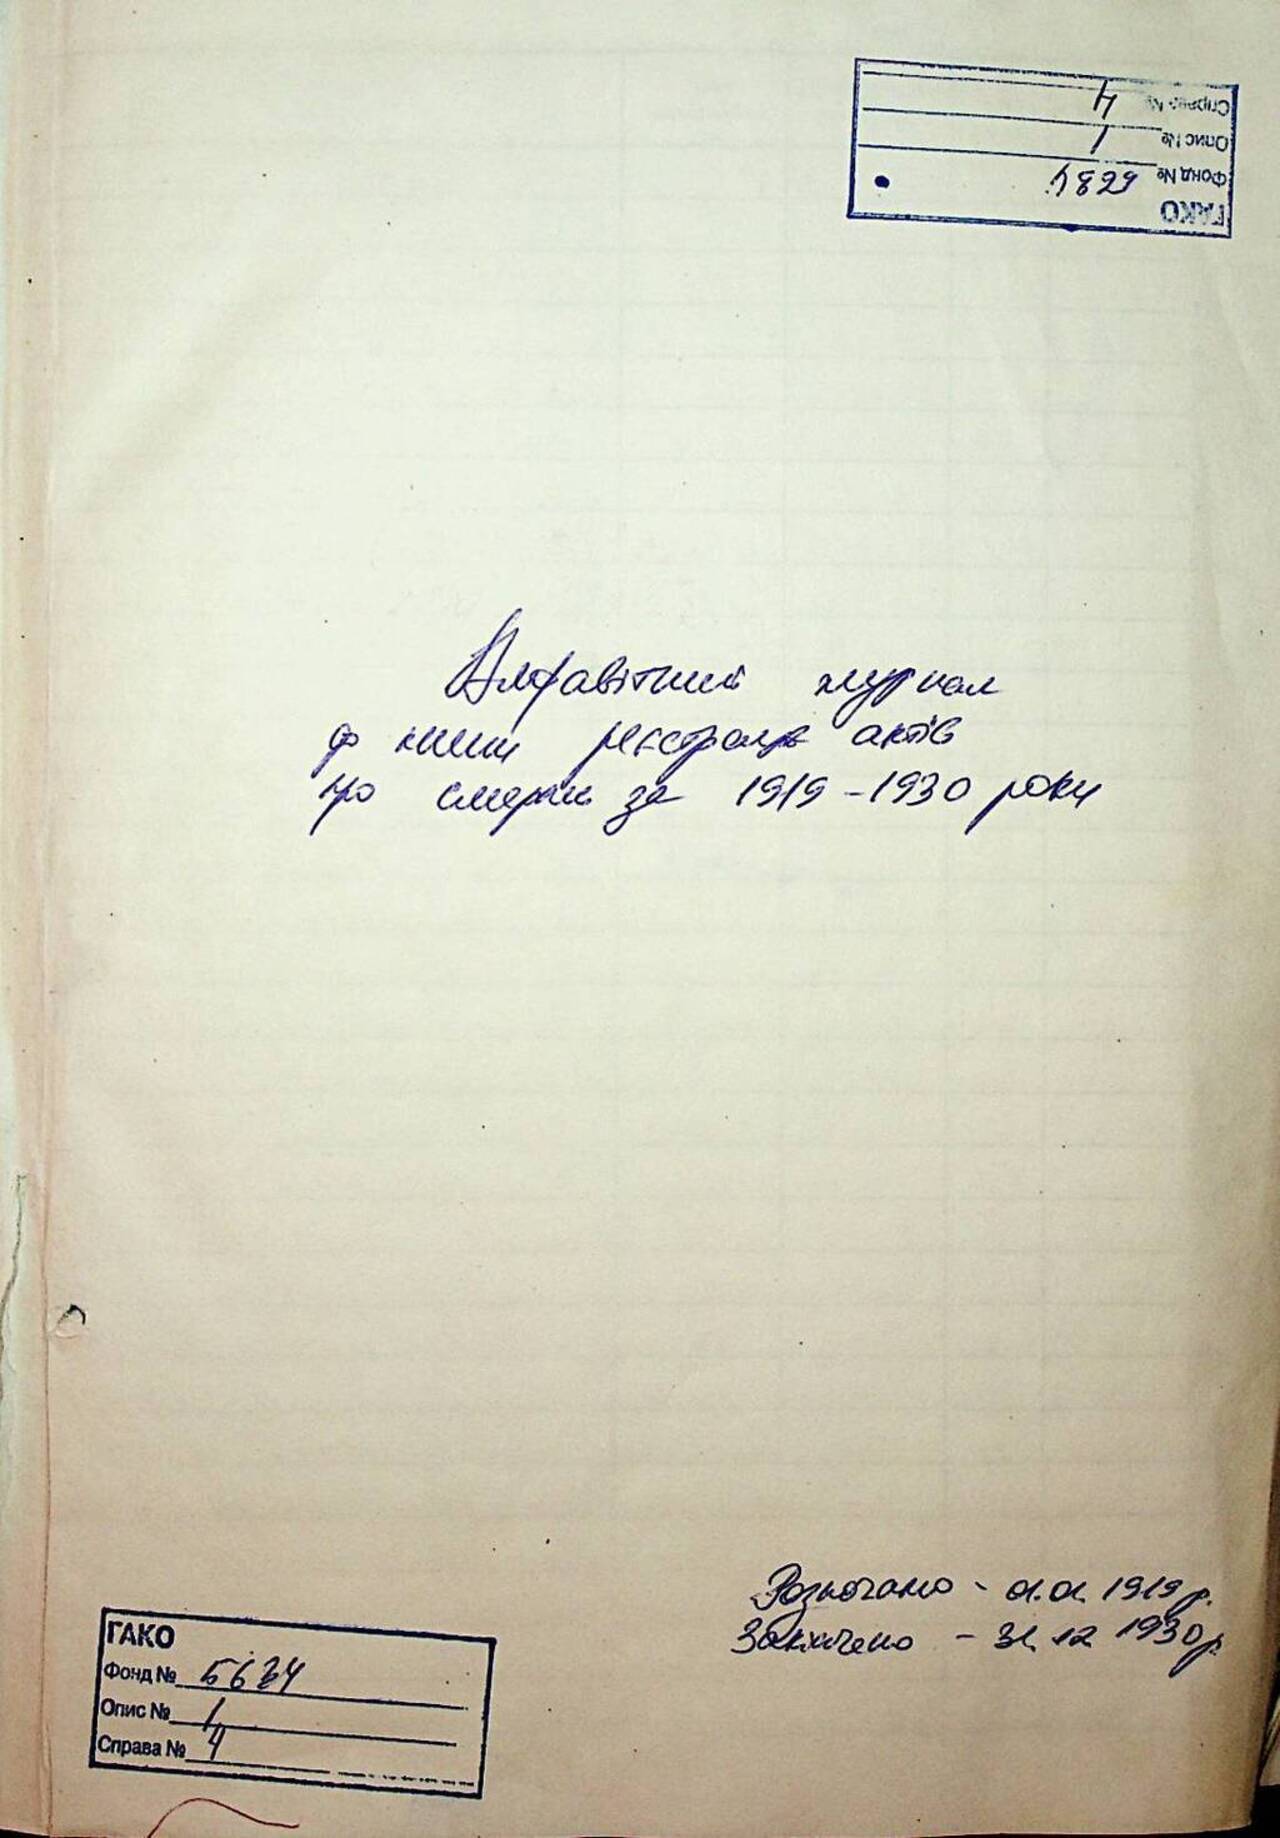 ГАКО
Фонд № 5634
Опис № 1
Справа № 4
Алфавітний журнал
до книги реєстрації актів
про смерть за 1919-1930 роки
Розпочато - 01.01.1919 р.
Закінчено - 31.12 1930 р.
ГАКО
Фонд № 5634
Опис № 1
Справа № 4